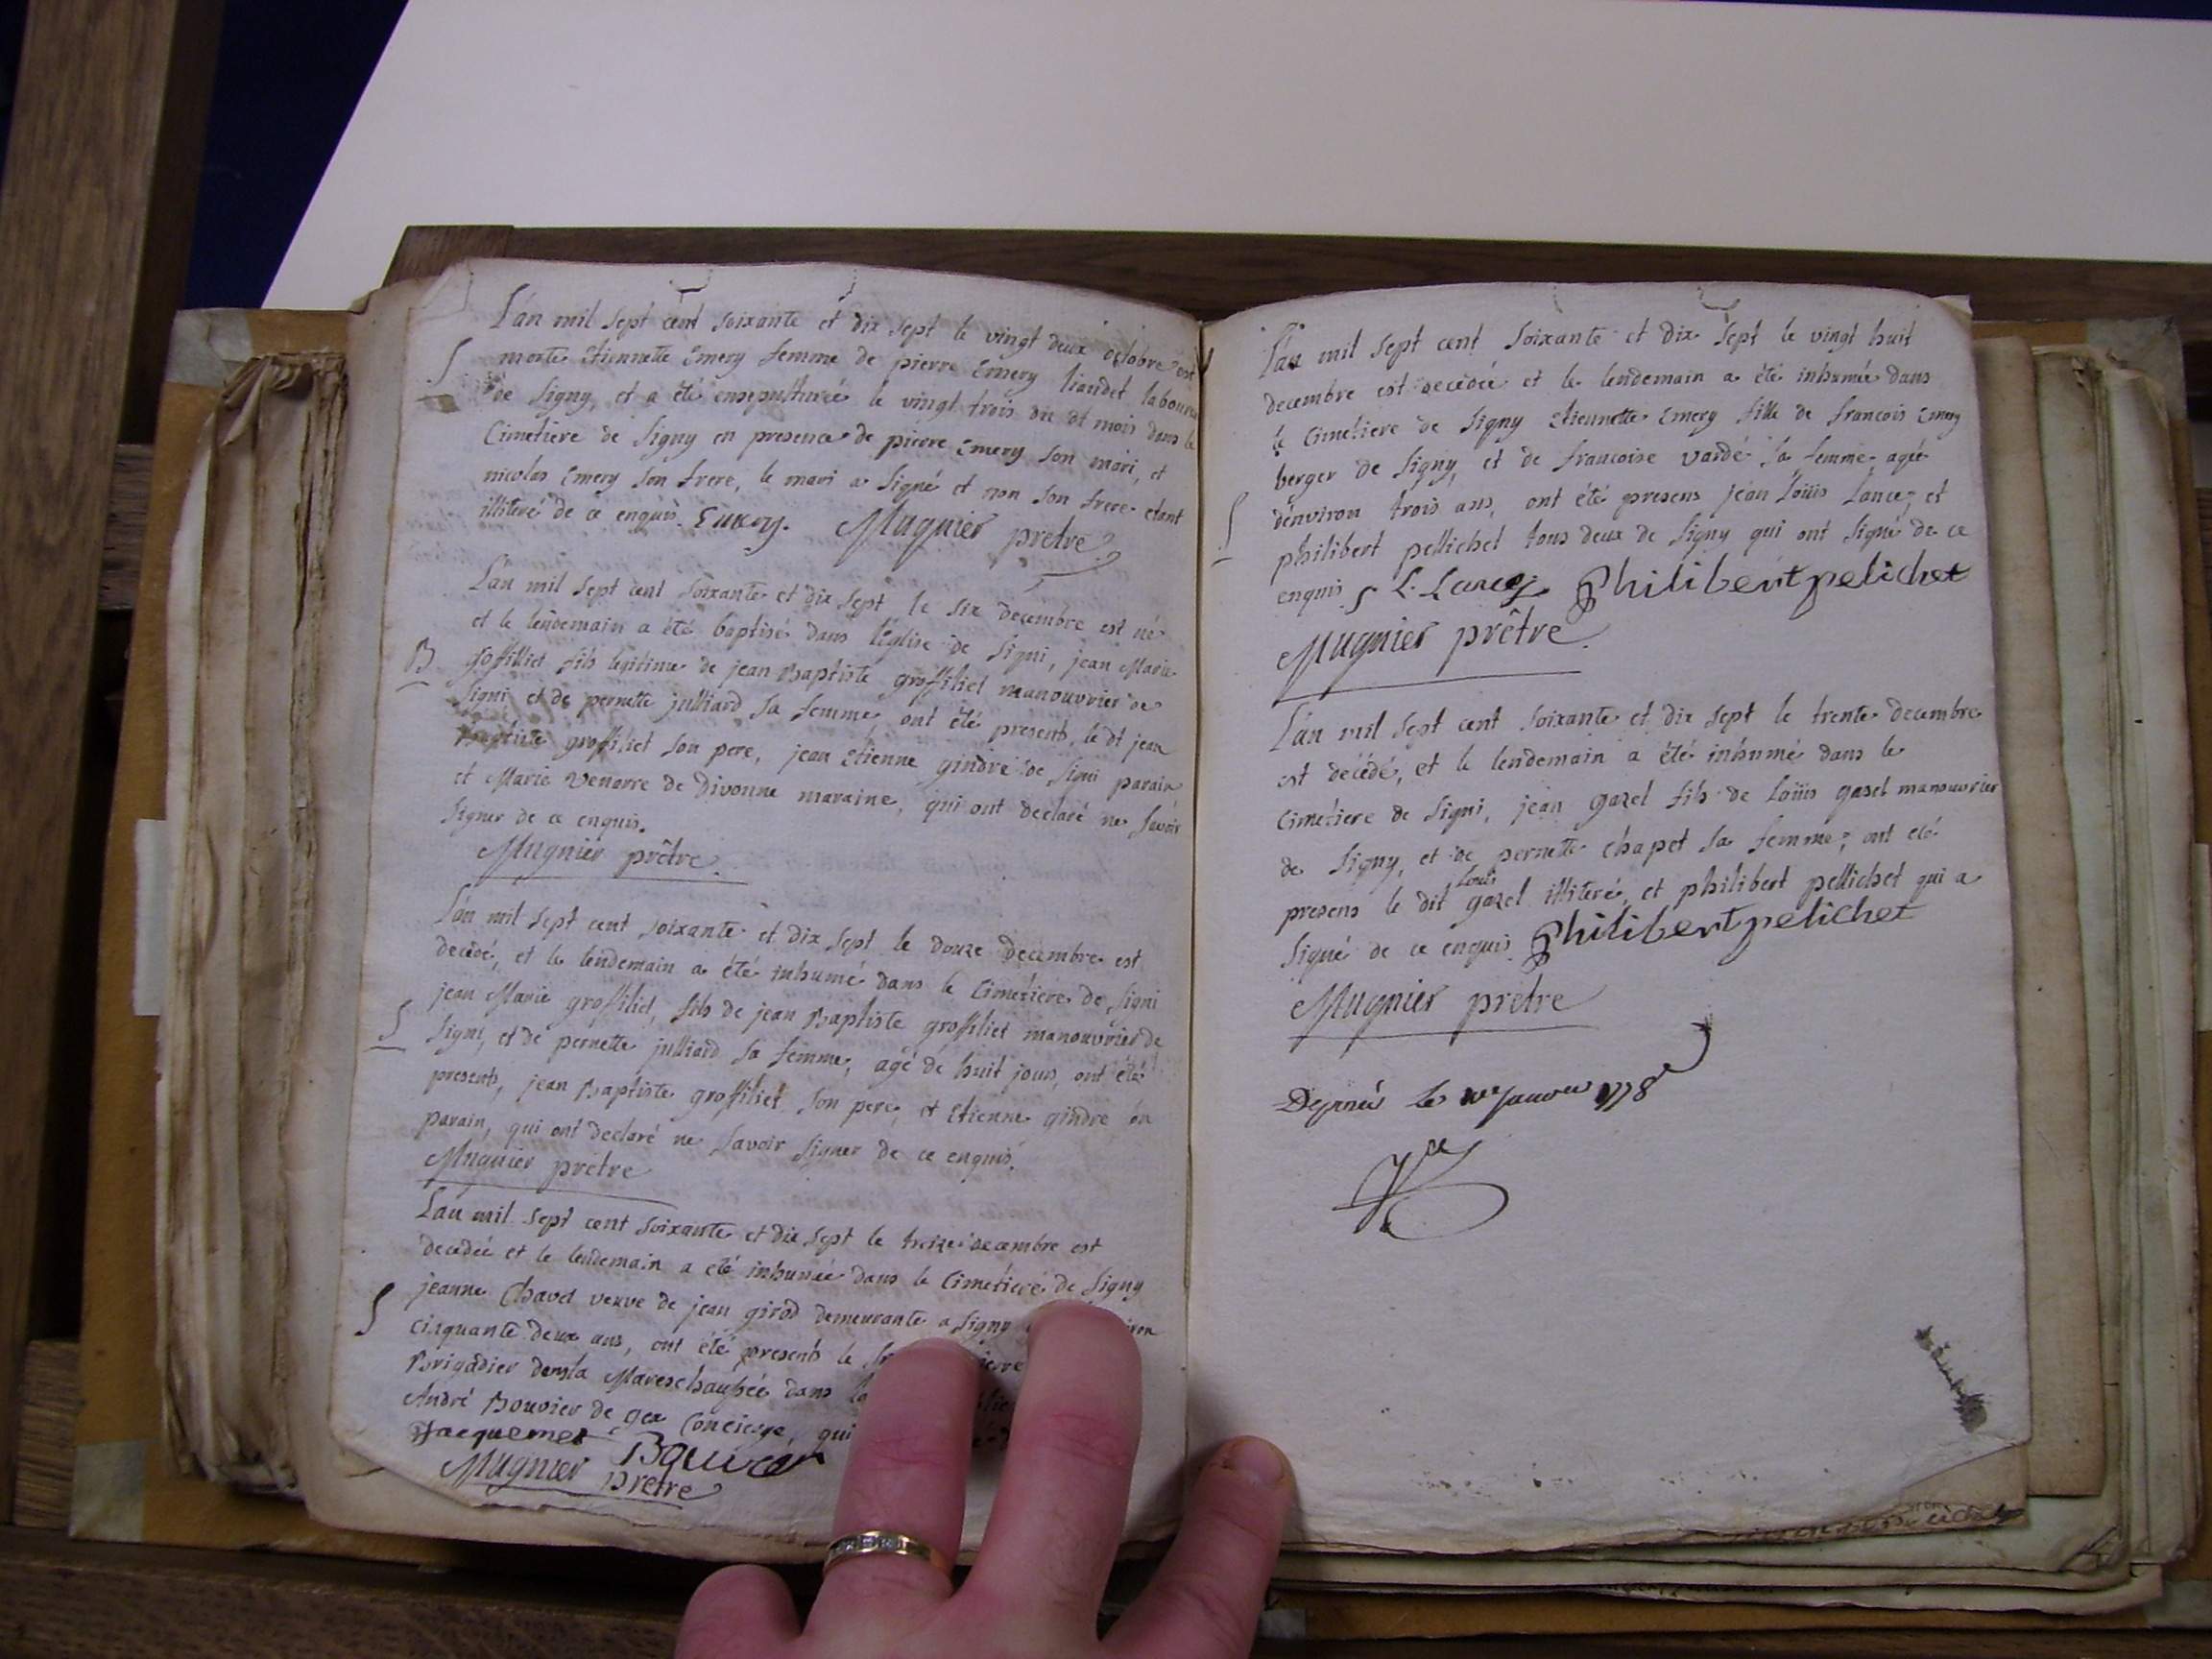 L'an mil sept cent soixante et dix sept le vingt deux octobre est
S morte Etiennette Emery femme de pierre Emery laboureur
de Signy, et a été ensepulturée le vingt trois du dt mois dans le
Cimetiere de Signy en presence de pierre Emery son mari, et
nicolas Emery son frere, le mari a signé et non son frere etant
illiteré de ce enquis. Emery. Mugnier prêtre
L'an mil sept cent soixante et dix sept le six decembre est né
et le lendemain a été baptisé dans l'Eglise de Signi, jean Marie
B groffiliet fils legitime de jean Baptiste groffiliet manouvrier de
Signi et de pernette julliard sa femme, ont été presents, le dt jean
Baptiste groffiliet son pere, jean Etienne gindre de Signi parain
et Marie Venarre de Divonne maraine, qui ont declaré ne savoir
signer de ce enquis.
Mugnier prêtre.
L'an mil sept cent soixante et dix sept le douze decembre est
decédé, et le lendemain a été inhumé dans le Cimetiere de Signi
S jean Marie groffiliet, fils de jean Baptiste groffiliet manouvrier de
Signi, et de pernette julliard sa femme, agé de huit jours, ont été
presents, jean Baptiste groffiliet son pere, et Etienne gindre
parain, qui ont declaré ne savoir signer de ce enquis.
Mugnier prêtre
L'an mil sept cent soixante et dix sept le treize decembre est
decedée et le lendemain a été inhumée dans le Cimetiere de Signy
S jeanne Chavet veuve de jean girod demeurante a Signy
cinquante deux ans, ont été presents le
Brigadier dans la Mareschaussée dans
André Bouvier de gex Concierge, qui
Jacquemet Bouvier
Mugnier prêtre
L'an mil sept cent soixante et dix sept le vingt huit
decembre est decédée et le lendemain a été inhumée dans
le Cimetiere de Signy Etiennette Emery fille de francois Emery
berger de Signy, et de francoise vardé sa femme, agée
S d'environ trois ans, ont été presens jean Loüis Lancey et
philibert pellichet tous deux de Signy qui ont signé de ce
enquis J L. Lancey Philibert pelichet
Mugnier prêtre.
L'an mil sept cent soixante et dix sept le trente decembre
est decédé, et le lendemain a été inhumé dans le
Cimetiere de Signi, jean gazel fils de Loüis gasel manouvrier
de Signy, et de pernette chapet sa femme; ont été
presens le dit Louis gazel illiteré, et philibert pellichet qui a
signé de ce enquis. Philibert pelichet
Mugnier prêtre
le janvier 1778